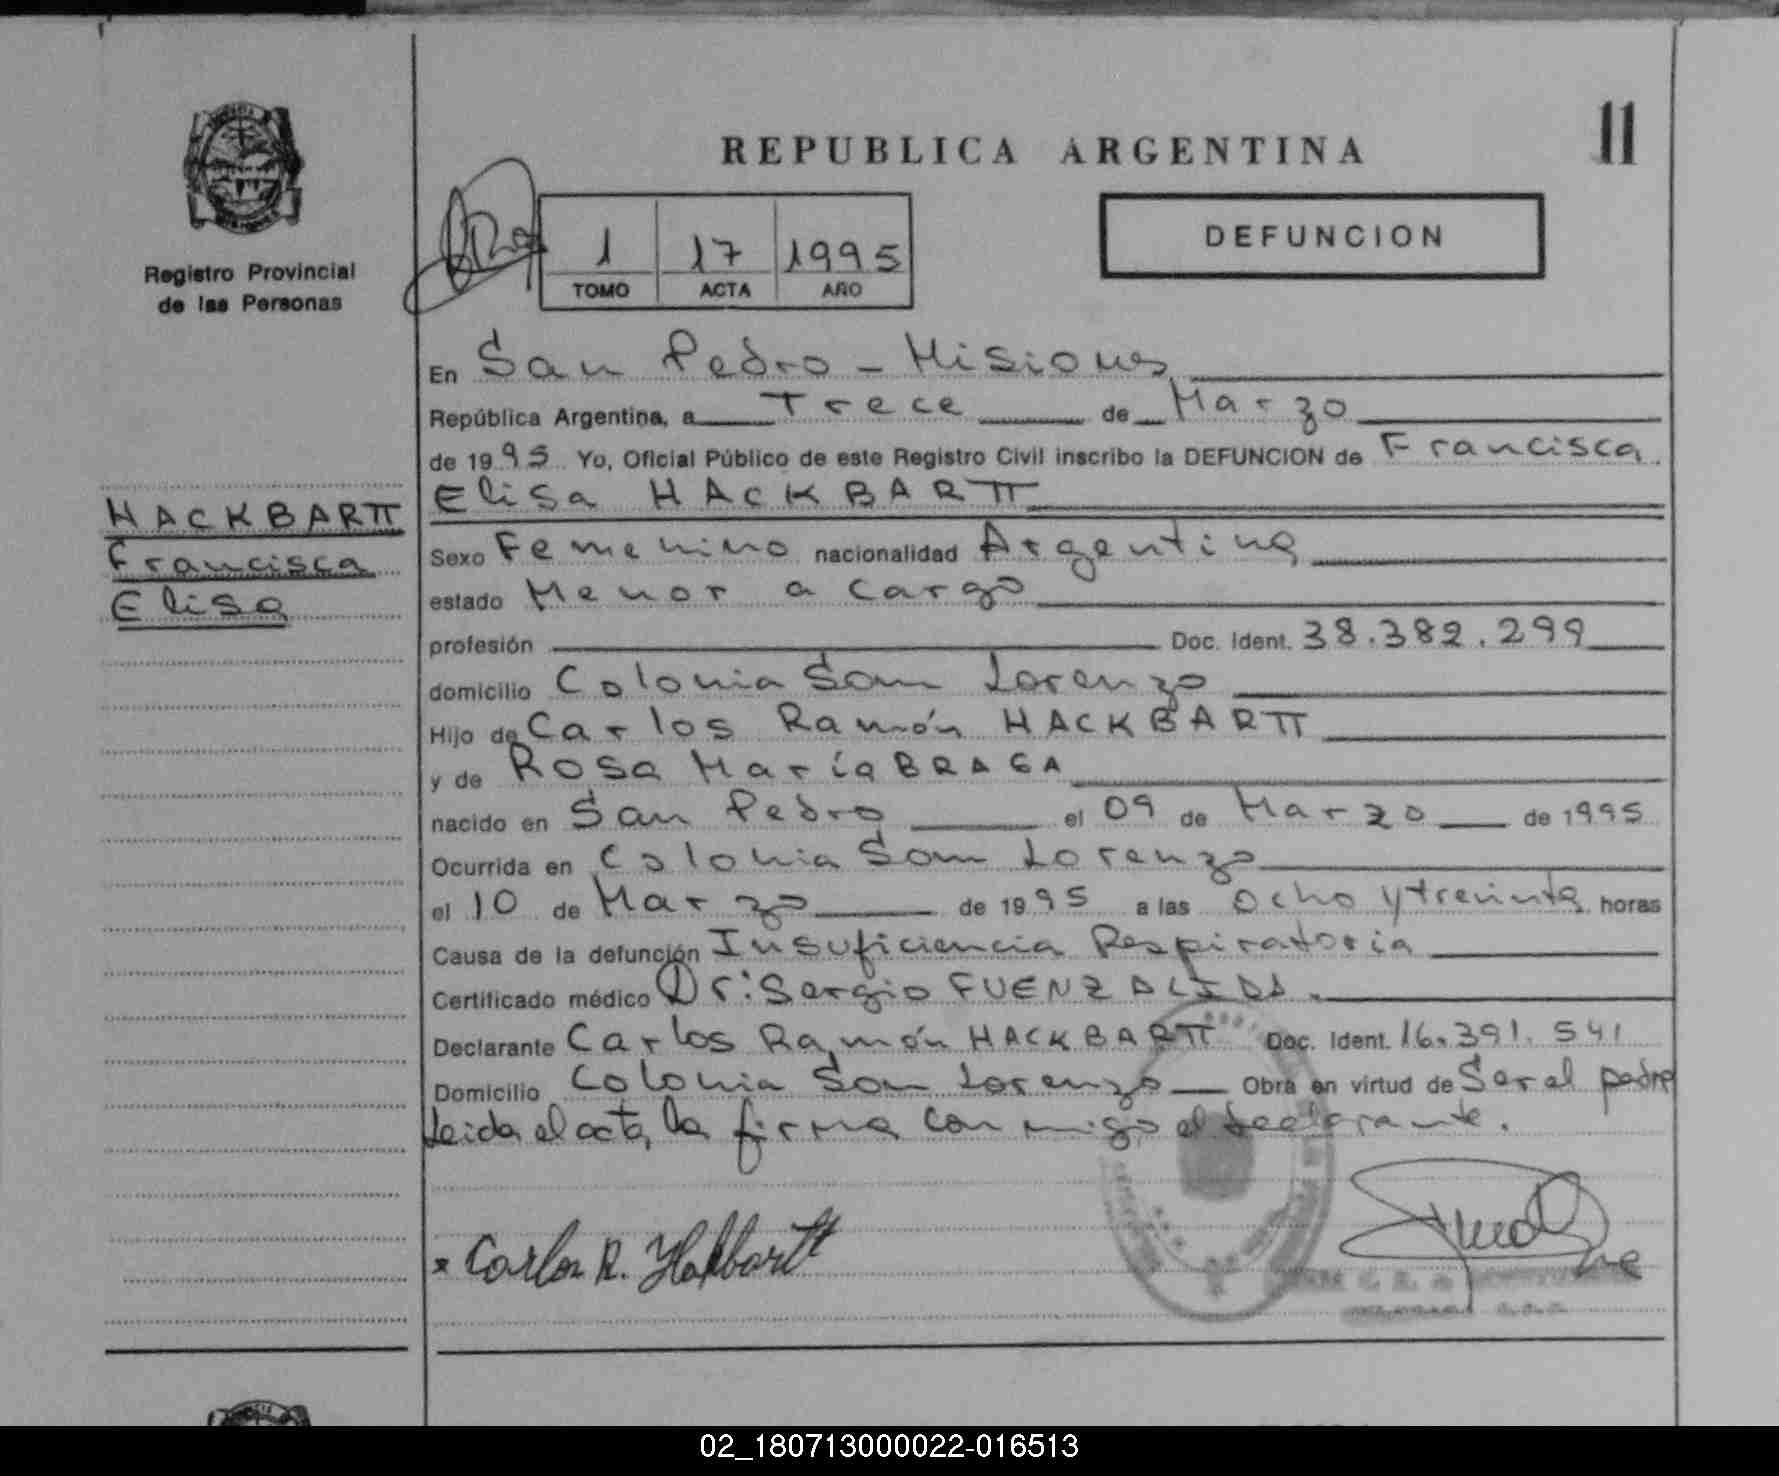 REPUBLICA ARGENTINA
11
Registro Provincial
de las Personas
1 17 1995
TOMO ACTA AÑO
DEFUNCION
HACKBARTT
Francisca
Elisa
En San Pedro - Misiones
República Argentina, a Trece de Marzo
de 1995 Yo, Oficial Público de este Registro Civil inscribo la DEFUNCION de Francisca
Elisa HACKBARTT
Sexo Femenino nacionalidad Argentina
estado Menor a cargo
profesión Doc. Ident. 38.382.299
domicilio Colonia San Lorenzo
Hijo de Carlos Ramón HACKBARTT
y de Rosa María BRAGA
nacido en San Pedro el 09 de Marzo de 1995
Ocurrida en Colonia San Lorenzo
el 10 de Marzo de 1995 a las Ocho y treinta horas
Causa de la defunción Insuficiencia Respiratoria
Certificado médico Dr: Sergio FUENZALIDA.
Declarante Carlos Ramón HACKBARTT Doc. Ident. 16.391.541
Domicilio Colonia San Lorenzo Obra en virtud de Ser el padre
Leida el acta, la firma con migo el declarante.
Carlos R. Hackbartt
02_180713000022-016513